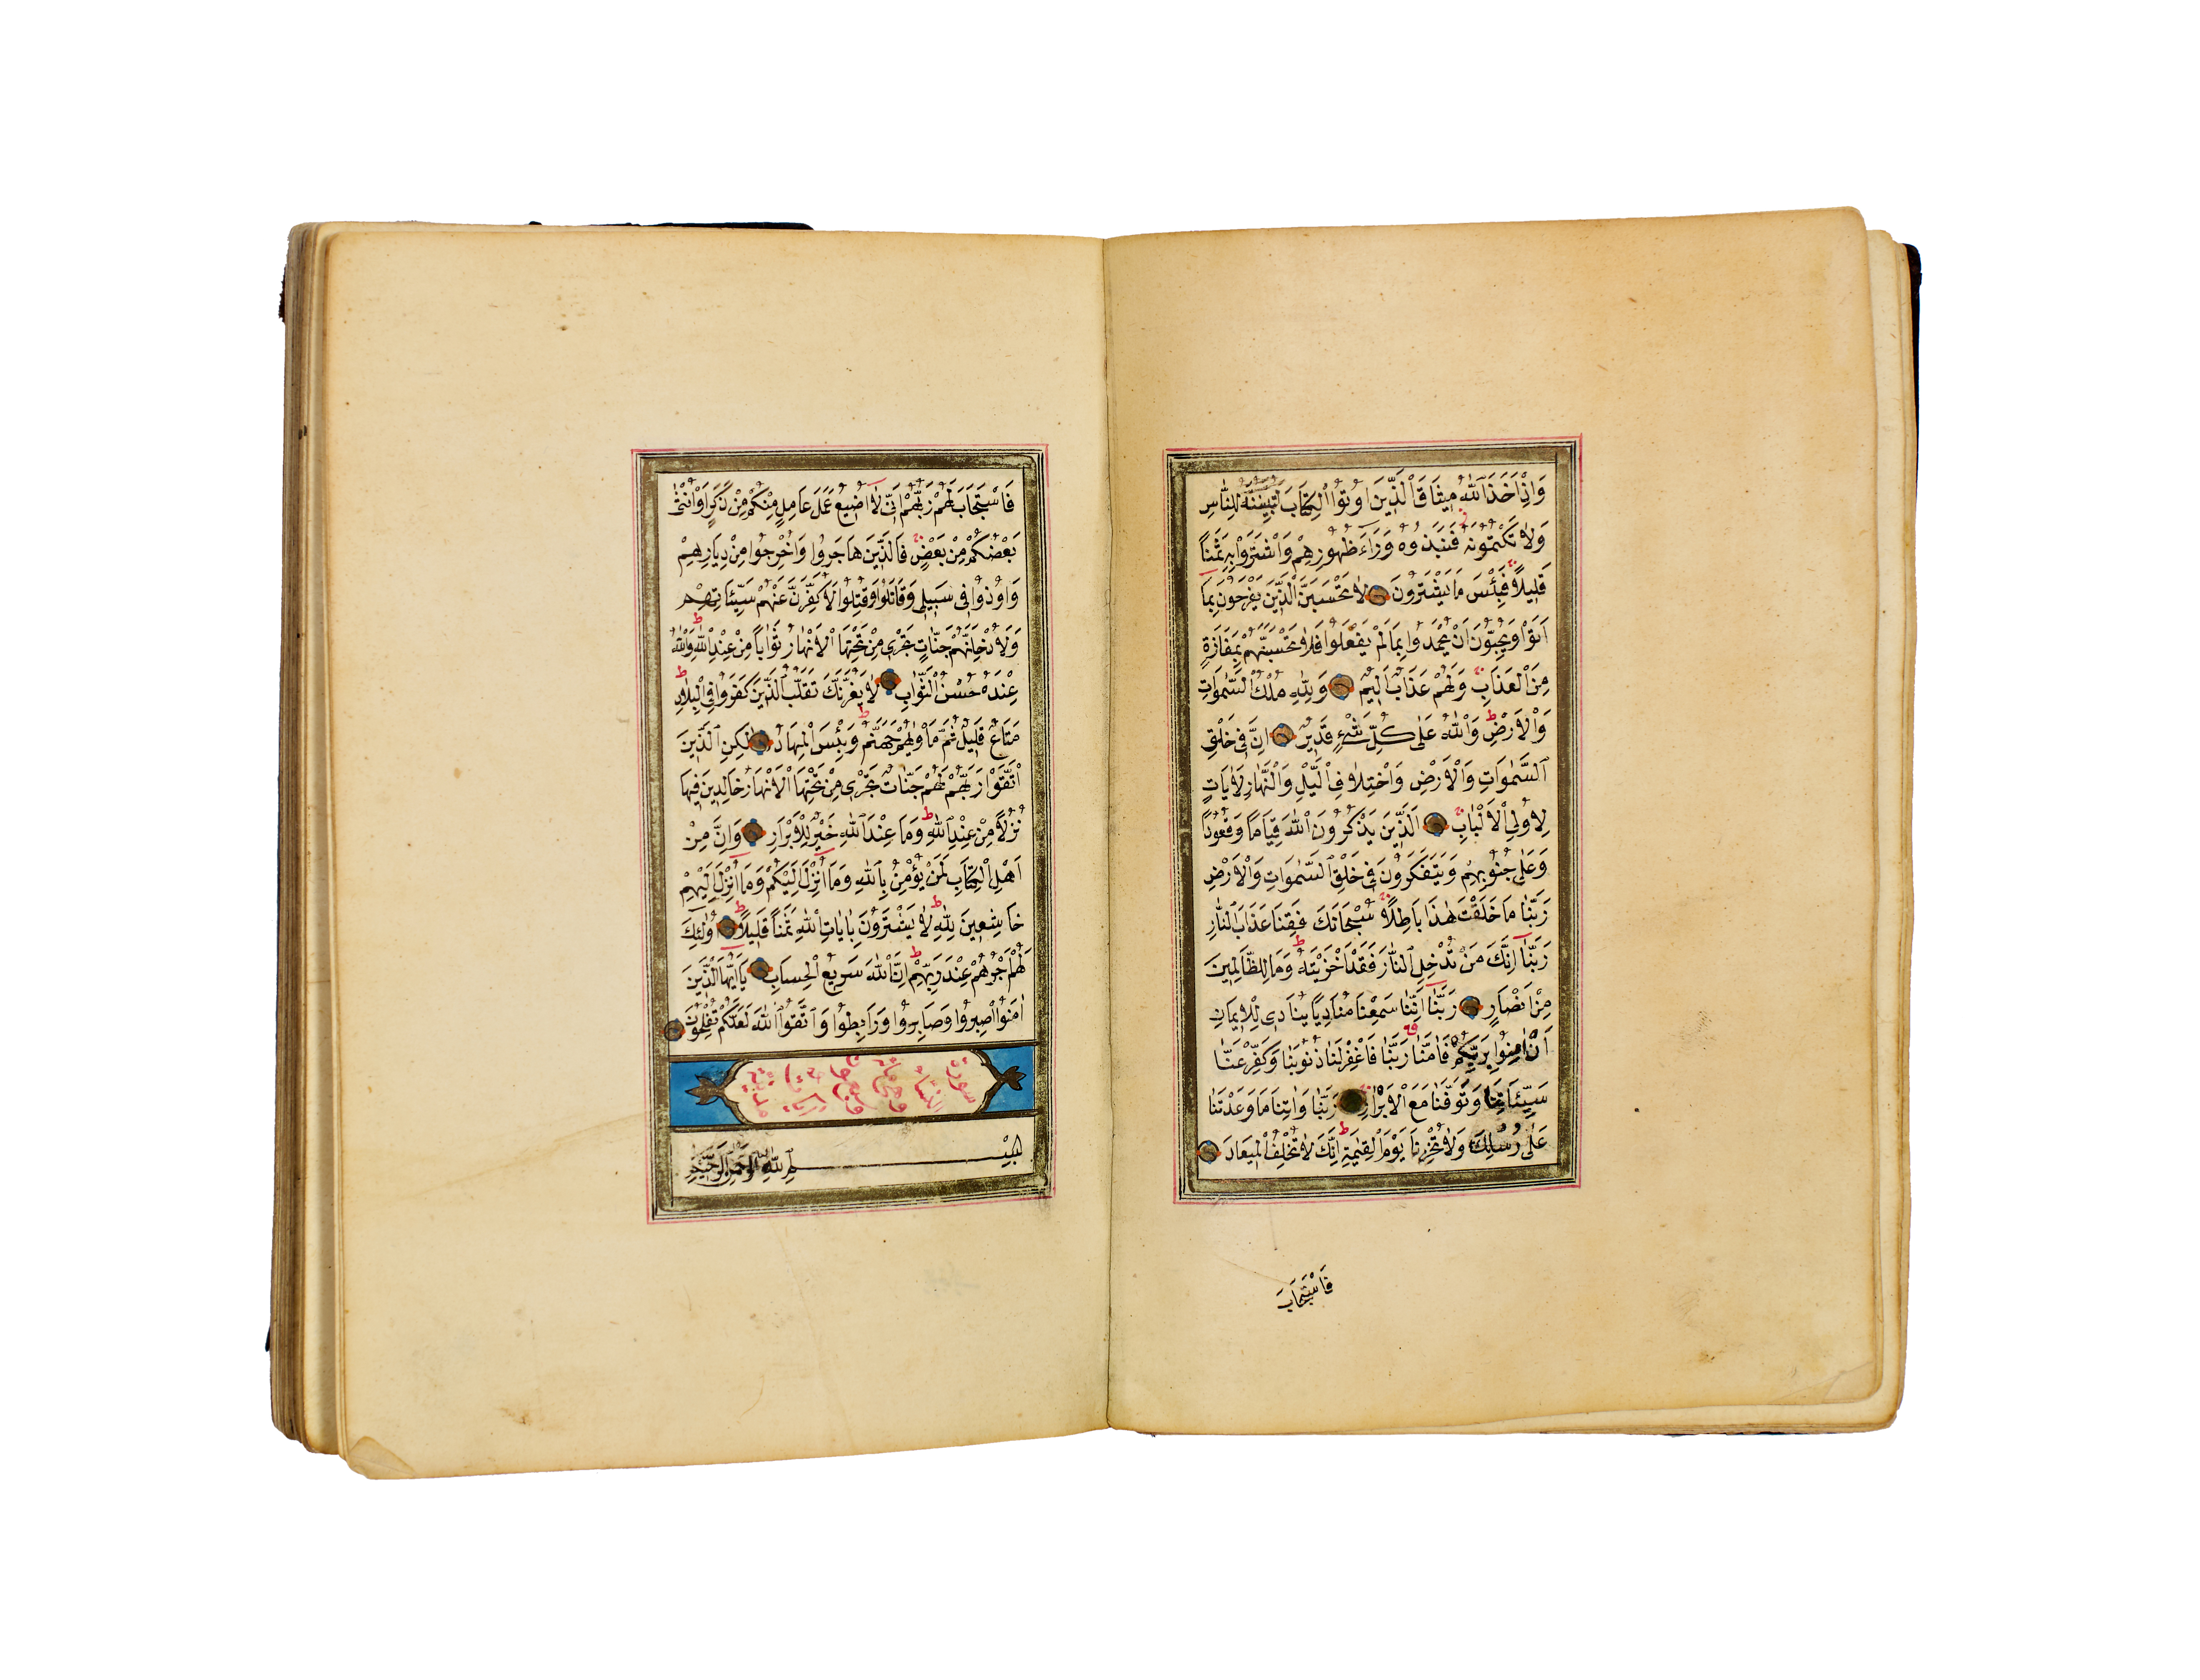 وَاِذْ اَخَذَ اللّٰهُ مِيثَاقَ الَّذِينَ اُوتُوا الْكِتَابَ لَتُبَيِّنُنَّهُ لِلنَّاسِ
وَلَا تَكْتُمُونَهُ فَنَبَذُوهُ وَرَٓاءَ ظُهُورِهِمْ وَاشْتَرَوْا بِهِ ثَمَناً
قَلِيلاً فَبِئْسَ مَا يَشْتَرُونَ لَا تَحْسَبَنَّ الَّذِينَ يَفْرَحُونَ بِمَٓا
اَتَوْا وَيُحِبُّونَ اَنْ يُحْمَدُوا بِمَا لَمْ يَفْعَلُوا فَلَا تَحْسَبَنَّهُمْ بِمَفَازَةٍ
مِنَ الْعَذَابِ وَلَهُمْ عَذَابٌ اَلِيمٌ وَلِلّٰهِ مُلْكُ السَّمٰوَاتِ
وَالْاَرْضِ وَاللّٰهُ عَلٰى كُلِّ شَيْءٍ قَدِيرٌ اِنَّ فِي خَلْقِ
السَّمٰوَاتِ وَالْاَرْضِ وَاخْتِلَافِ الَّيْلِ وَالنَّهَارِ لَاٰيَاتٍ
لِاُولِي الْاَلْبَابِ اَلَّذِينَ يَذْكُرُونَ اللّٰهَ قِيَاماً وَقُعُوداً
وَعَلٰى جُنُوبِهِمْ وَيَتَفَكَّرُونَ فِي خَلْقِ السَّمٰوَاتِ وَالْاَرْضِ
رَبَّنَا مَا خَلَقْتَ هٰذَا بَاطِلاً سُبْحَانَكَ فَقِنَا عَذَابَ النَّارِ
رَبَّنَٓا اِنَّكَ مَنْ تُدْخِلِ النَّارَ فَقَدْ اَخْزَيْتَهُ وَمَا لِلظَّالِمِينَ
مِنْ اَنْصَارٍ رَبَّنَٓا اِنَّنَا سَمِعْنَا مُنَادِياً يُنَادِي لِلْاِيمَانِ
اَنْ اٰمِنُوا بِرَبِّكُمْ فَاٰمَنَّا رَبَّنَا فَاغْفِرْ لَنَا ذُنُوبَنَا وَكَفِّرْ عَنَّا
سَيِّئَاتِنَا وَتَوَفَّنَا مَعَ الْاَبْرَارِ رَبَّنَا وَاٰتِنَا مَا وَعَدْتَنَا
عَلٰى رُسُلِكَ وَلَا تُخْزِنَا يَوْمَ الْقِيٰمَةِ اِنَّكَ لَا تُخْلِفُ الْمِيعَادَ
فَاسْتَجَابَ
فَاسْتَجَابَ لَهُمْ رَبُّهُمْ اَنِّي لَٓا اُضِيعُ عَمَلَ عَامِلٍ مِنْكُمْ مِنْ ذَكَرٍ اَوْ اُنْثٰى
بَعْضُكُمْ مِنْ بَعْضٍ فَالَّذِينَ هَاجَرُوا وَاُخْرِجُوا مِنْ دِيَارِهِمْ
وَاُوذُوا فِي سَبِيلِي وَقَاتَلُوا وَقُتِلُوا لَاُكَفِّرَنَّ عَنْهُمْ سَيِّئَاتِهِمْ
وَلَاُدْخِلَنَّهُمْ جَنَّاتٍ تَجْرِي مِنْ تَحْتِهَا الْاَنْهَارُ ثَوَاباً مِنْ عِنْدِ اللّٰهِ وَاللّٰهُ
عِنْدَهُ حُسْنُ الثَّوَابِ لَا يَغُرَّنَّكَ تَقَلُّبُ الَّذِينَ كَفَرُوا فِي الْبِلَادِ
مَتَاعٌ قَلِيلٌ ثُمَّ مَأْوٰيهُمْ جَهَنَّمُ وَبِئْسَ الْمِهَادُ لٰكِنِ الَّذِينَ
اتَّقَوْا رَبَّهُمْ لَهُمْ جَنَّاتٌ تَجْرِي مِنْ تَحْتِهَا الْاَنْهَارُ خَالِدِينَ فِيهَا
نُزُلاً مِنْ عِنْدِ اللّٰهِ وَمَا عِنْدَ اللّٰهِ خَيْرٌ لِلْاَبْرَارِ وَاِنَّ مِنْ
اَهْلِ الْكِتَابِ لَمَنْ يُؤْمِنُ بِاللّٰهِ وَمَٓا اُنْزِلَ اِلَيْكُمْ وَمَٓا اُنْزِلَ اِلَيْهِمْ
خَاشِعِينَ لِلّٰهِ لَا يَشْتَرُونَ بِاٰيَاتِ اللّٰهِ ثَمَناً قَلِيلاً اُولٰٓئِكَ
لَهُمْ اَجْرُهُمْ عِنْدَ رَبِّهِمْ اِنَّ اللّٰهَ سَرِيعُ الْحِسَابِ يَٓا اَيُّهَا الَّذِينَ
اٰمَنُوا اصْبِرُوا وَصَابِرُوا وَرَابِطُوا وَاتَّقُوا اللّٰهَ لَعَلَّكُمْ تُفْلِحُونَ
سورة النساء وهي مائة
بِسْمِ اللّٰهِ الرَّحْمٰنِ الرَّحِيمِ